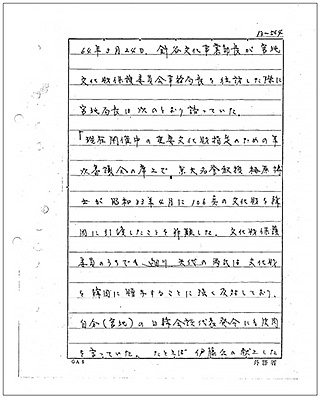 64年3月24日、針谷文化事業部長が宮地
文化財保護委員会事務局長を往訪した際に
宮地局長は次のとおり語っていた。
「現在開催中の重要文化財指定のための年
次審議会の席上で、京大名誉教授 梅原博
士が昭和33年4月に106点の文化財を韓
国に引渡したことを非難した。文化財保護
委員のうちでも、細川、矢代の両氏は文化財
を韓国に贈与することに強く反対しており、
自分(宮地)の日韓会談代表発令にも皮肉
を言っていた。たとえば伊藤公の献上した
GA-8
外務省